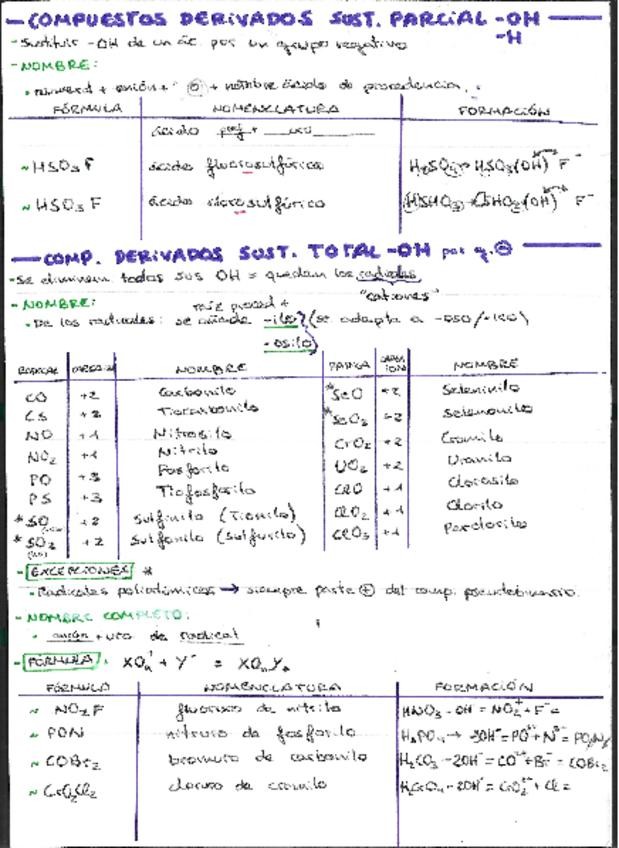 - COMPUESTOS DERIVADOS SUST. PARCIAL -OH
-H
- Sustituir -OH de un ác. por un grupo negativo
- NOMBRE:
• numeral + anión + ⊖ + nombre ácido de procedencia.
FÓRMULA NOMENCLATURA FORMACIÓN
ácido pref +
~ HSO₃F ácido fluorosulfúrico
~ HSO₃F ácido sulfúrico
- COMP. DERIVADOS SUST. TOTAL -OH por g. ⊖
- Se eliminan todos sus OH = quedan los radicales
"cationes"
- NOMBRE: raíz proced +
• De los radicales: se añade -ilo (se adapta a -oso/-ico)
-osilo
RADICAL NOMBRE NOMBRE
CO +2 Carbonilo *SeO +2 Seleninilo
CS +2 Tiocarbonilo *SeO₂ +2 Selenonilo
NO +1 Nitrosilo CrO₂ +2 Cromilo
NO₂ +1 Nitrilo UO₂ +2 Uranilo
PO +3 Fosforilo ClO +1 Clorosilo
PS +3 Tiofosforilo ClO₂ +1 Clorilo
*SO +2 Sulfinilo (Tionilo) ClO₃ +1 Perclorilo
*SO₂ +2 Sulfonilo (Sulfurilo)
- EXCEPCIONES *
• Radicales poliatómicos → siempre parte ⊕ del comp. pseudobinario.
- NOMBRE COMPLETO:
• anión + uro de radical
- FÓRMULA:
FÓRMULA NOMENCLATURA FORMACIÓN
~ NO₂F fluoruro de nitrilo HNO₃ - OH = NO₂⁺ + F⁻ =
~ PON nitruro de fosforilo H₃PO₄ → 3OH⁻ = PO³⁺ + N³⁻ =
~ COBr₂ bromuro de carbonilo H₂CO₃ - 2OH⁻ = CO²⁺ + Br⁻ = COBr₂
~ CrO₂Cl₂ cloruro de cromilo H₂CrO₄ - 2OH⁻ = CrO₂²⁺ + Cl =